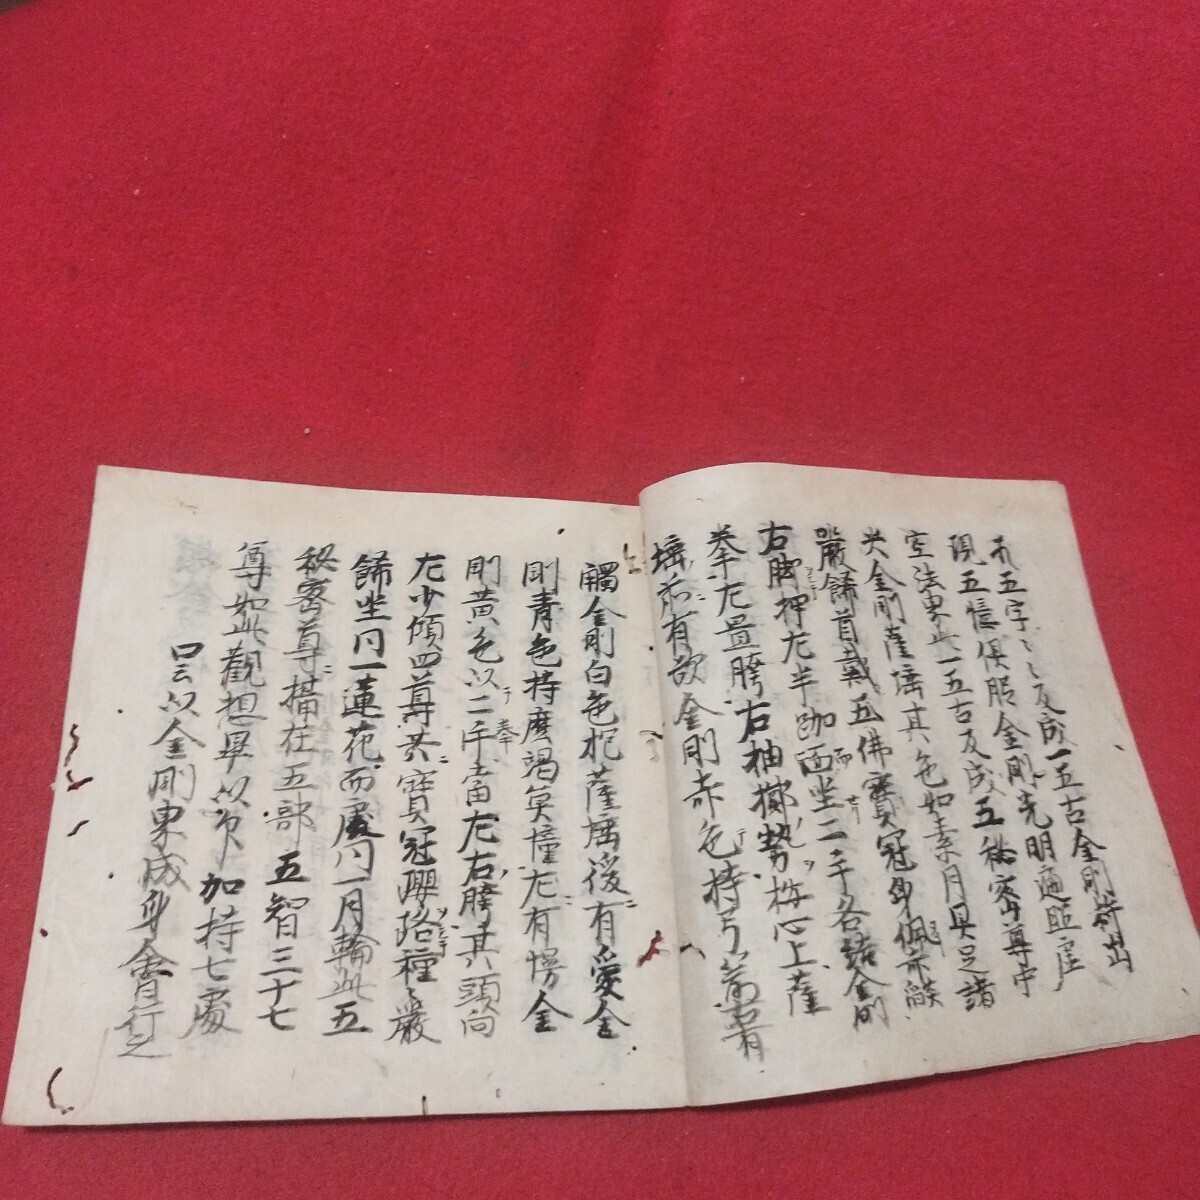 五字〻〻反成一五古金剛杵出
現五億俱胝金剛光明遍照虚
空法界此一五古反成五秘密尊中
央金剛薩埵其色如素月具足諸
嚴餝首戴五佛寳冠身佩
右脚押左半跏而坐二手各結金剛
拳左置胯右抽擲勢檢心上薩
埵前有欲金剛赤色持弓箭右有
觸金剛白色抱薩埵後有愛金
剛青色持摩竭幢左有慢金
剛黄色以二手拳當左右胯其頭向
左少傾四尊共寳冠瓔珞種〻嚴
餝坐同一蓮花而處同一月輪此五
秘密尊攝在五部五智三十七
尊如此觀想畢以印加持七處
口云以金剛界成身會行之